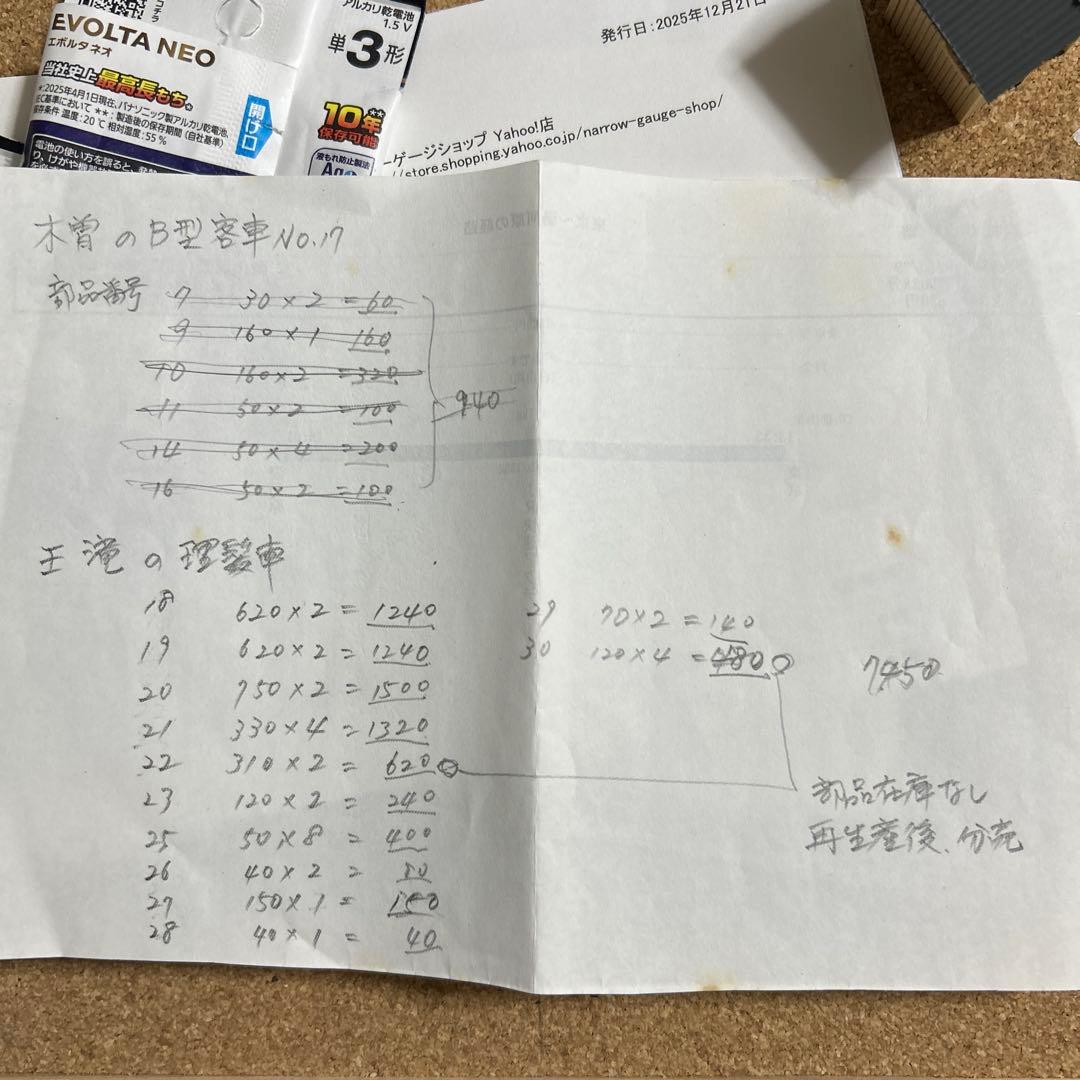 コチラ
EVOLTA NEO
エボルタネオ
当社史上最高長もち*
*:2025年4月1日現在、パナソニック製アルカリ乾電池、
IEC基準において **:製造後の保存期間(自社基準)
保存条件 温度:20℃ 相対湿度:55%
開け口
アルカリ乾電池
1.5V
単3形
10年**
保存可能
液もれ防止製法
電池の使い方を誤ると、
発行日:2025年12月21日
ーゲージショップ Yahoo!店
//store.shopping.yahoo.co.jp/narrow-gauge-shop/
木曽のB型客車NO.17
部品番号 7 30×2=60
9 160×1 160
10 160×2=320
11 50×2=100
14 50×4=200
16 50×2=100
940
王滝の理髪車
18 620×2=1240
19 620×2=1240
20 750×2=1500
21 330×4=1320
22 310×2=620
23 120×2=240
25 50×8=400
26 40×2=80
27 150×1=150
28 40×1=40
29 70×2=140
30 120×4=480
7450
部品在庫なし
再生産後、分売